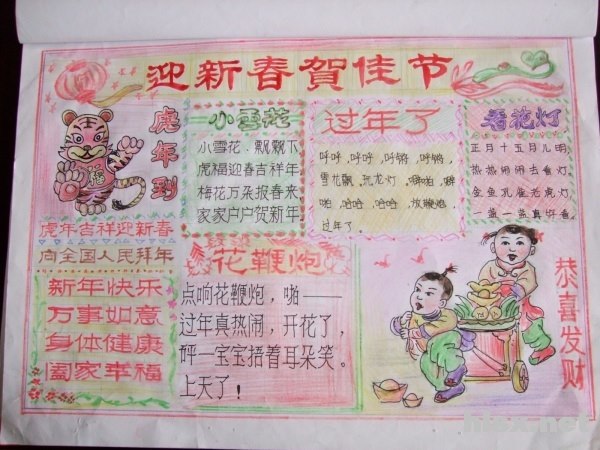 迎新春賀佳节
虎年到
虎年吉祥迎新春
向全国人民拜年
新年快乐
万事如意
身体健康
阖家幸福
小雪花
小雪花、飘飘下
虎福迎春吉祥年
梅花万朵报春来
家家户户贺新年
过年了
呼呼,呼呼,呼锵,呼锵,
雪花飘,玩龙灯,噼啪,噼
啪,哈哈,哈哈,放鞭炮,
过年了。
看花灯
正月十五月儿明
热热闹闹去看灯
金鱼孔雀老虎灯
一盏一盏真好看
花鞭炮
点响花鞭炮，啪——
过年真热闹，开花了，
呯一宝宝捂着耳朵笑。
上天了！
恭喜发财
福
hlsx.net